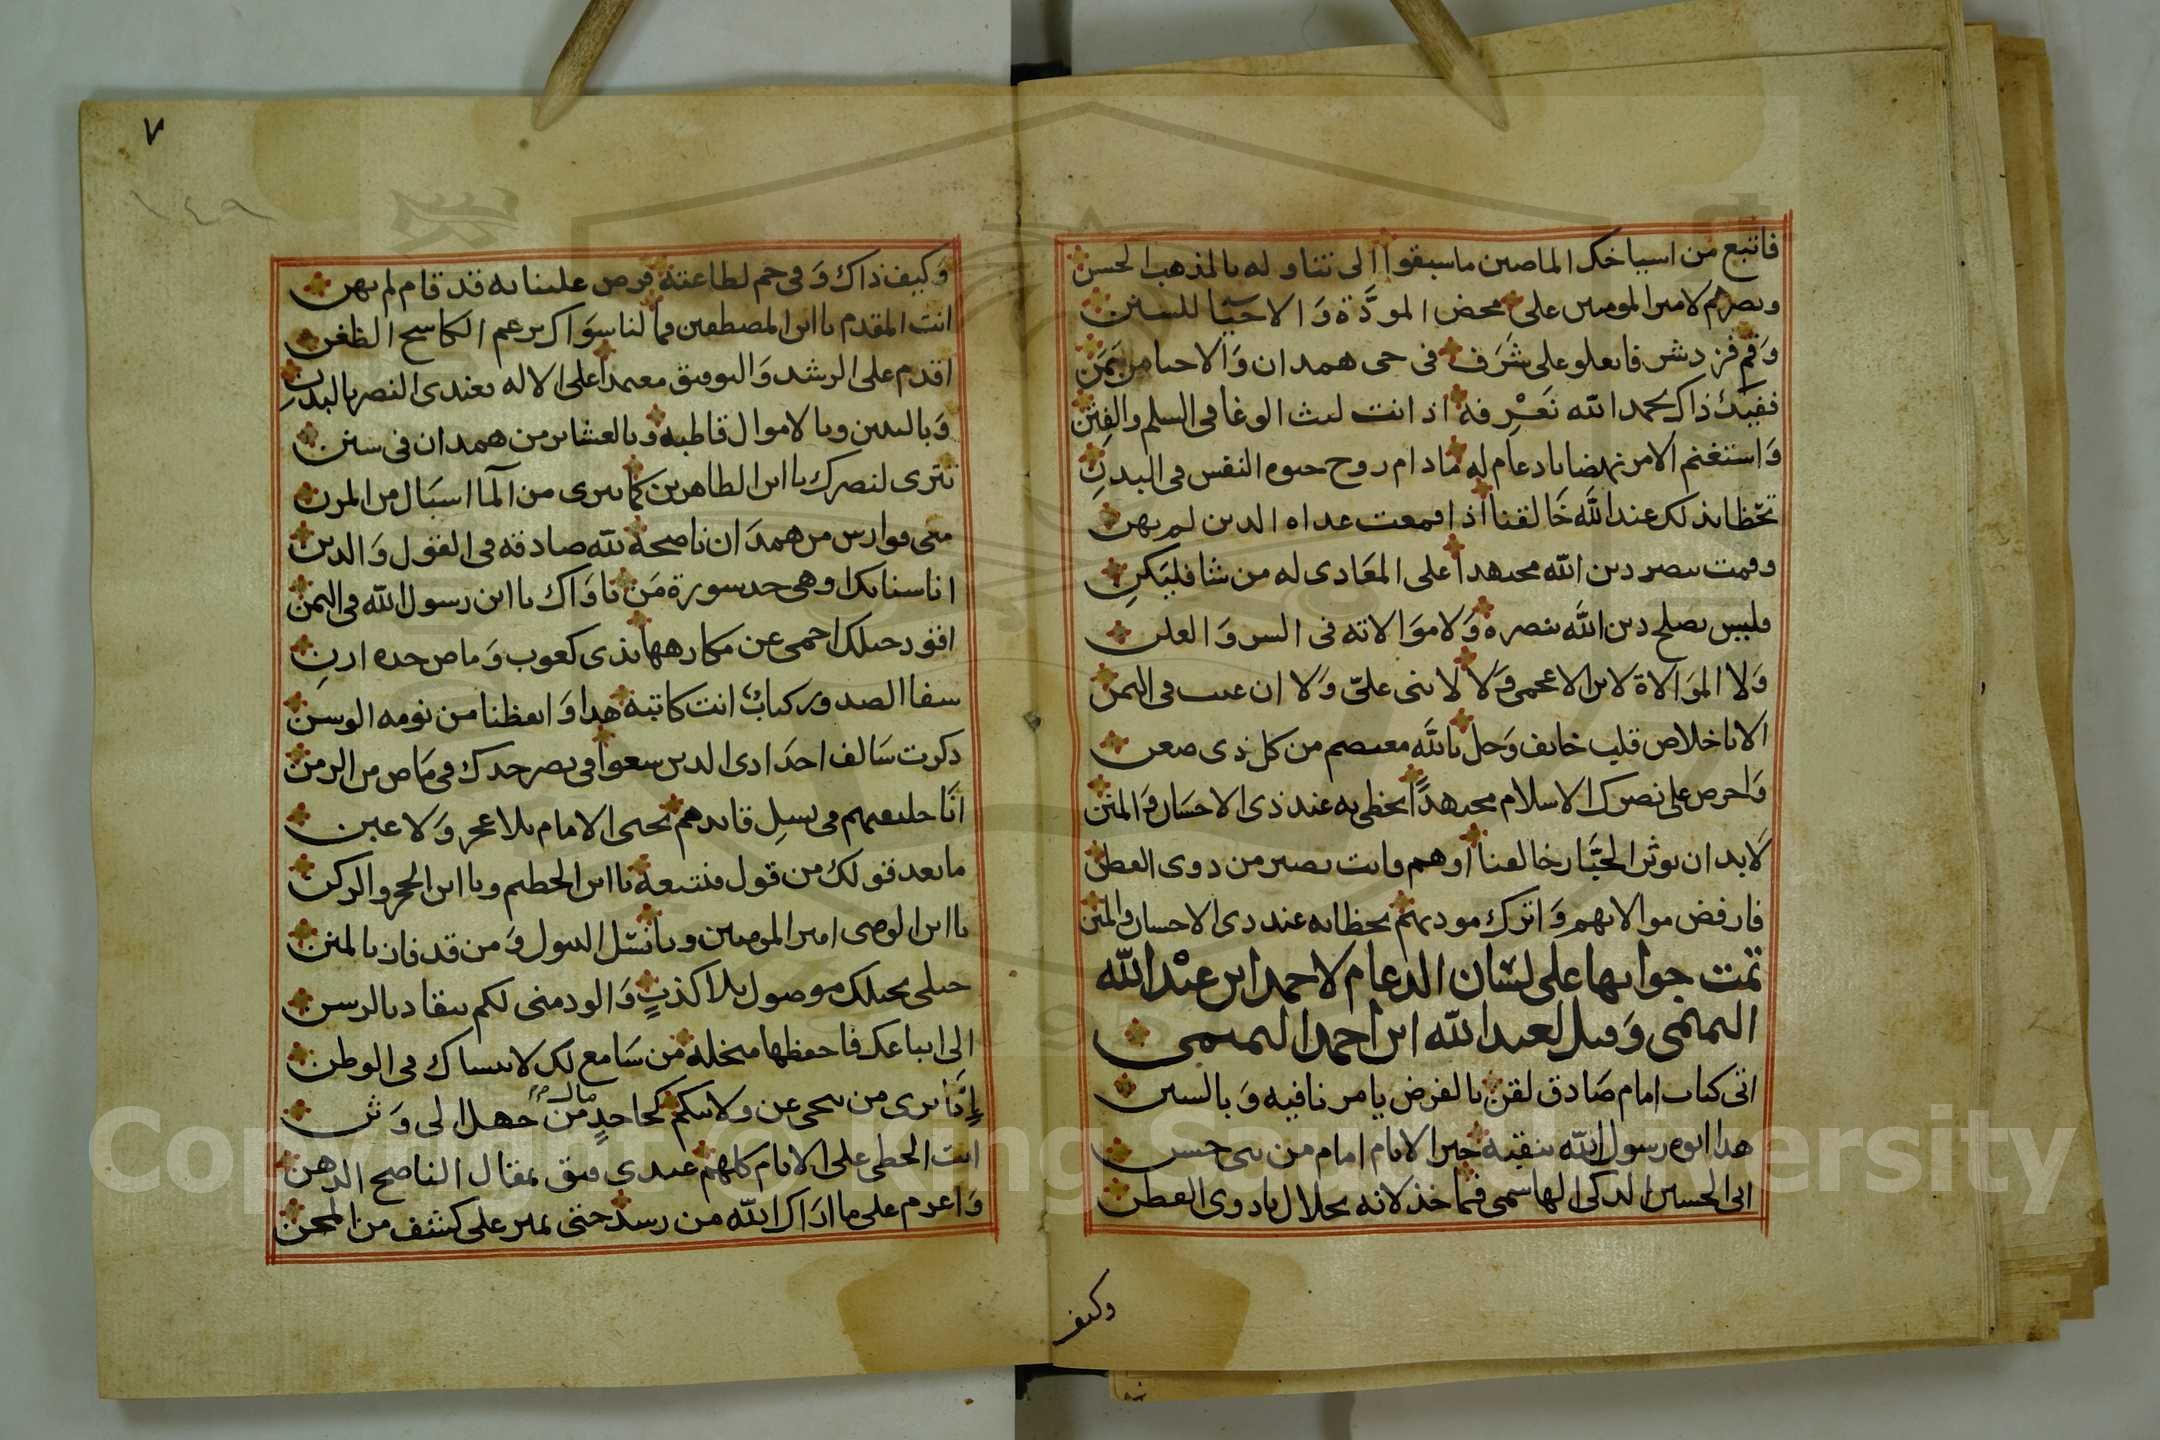 فاتبع من اسباخك الماصين ما سبقوا الى تناوله بالمذهب الحسن
ونصرهم لامير المومنين على محض المودَّة وَالاحبَا للسنن
وَقم فزد شرفا يعلو على شَرَف فى حى همدان وَالاحيا من يَمَن
نفيك ذاك بحمد الله نَعْرِفه اذ انت ليث الوغا فى السلم والفِتن
وَاستغنم الامر نهضا يا دعام له مادام روح حيوه النفس فى البدنِ
تحظا بذلك عند اللَّه خَالقنا اذا قمعت عداه الدين لم يهن
وقمت بنصر دين الله مجتهدا على المعَادى له من شا فليَكنِ
فليس يصلح دين اللَّه بنصره وَلا موَالاته فى السر وَالعلن
وَلا الموَالاة لابن الاعجمى وَلا لابنى علىّ وَلا ان غبت فى اليمن
الا باخلاص قلب خايف وَجل باللَّه معتصم من كل ذى ضغن
وَاحرص على نصرك الاسلام مجتهدًا تحظى به عند ذى الاحسَان وَالمنن
لابد ان يوثر الجبَّار خالقنا او هم وانت بصير من ذوى الفطن
فارفض موالاتهم وَاترك مودتهم تحظا به عند ذى الاحسان والمنن
تمت جوابها على لسَان الدعام لاحمد ابن عبْد الله
التميمى وَقيل لعبد اللّه ابن احمد التميمى
اتى كتاب امام صَادق لقن بالفرض يامرنا فيه وَبالسنن
هذا ابوه رسول اللّه ينقبه خير الانام امام من بنى حسن
ابى الحسين الدكى الهاسمى فما خذلانه بحلال يا ذوى الفطن
وكيف
٧
١٤٩
وَكيف ذاك وَفى حم لطاعته فرض علينا به قد قام لم يهن
انت المقدم يا ابن المصطفين فما لنا سوَاك برعم الكاسح الظغن
اقدم على الرشد وَالتوفيق معتمدا على الاله فعندى النصر بالبدنِ
وَبالبنين وبالاموال قاطبه وبالعشاير من همدان فى سنن
تترى لنصرك يا ابن الطاهرين كما تترى من آلما اسبَال من المزن
منى فوارس من همدَان ناصحة للّه صادقه فى القول وَالدين
انا سنابك اوهى حد سورة مَن ناوَاك يا ابن رسول الله فى اليمن
افنو رحبلك احمى عن مكارهها بذى كعوب وَماض حده ارنِ
سفا الصدور كتابٌ انت كاتبه هدا وَايقظنا من نومه الوسن
ذكرت سَالف اجدَادى الدين سعوا فى نصر جدك فى مَاض من الزمن
انَا خليفتهم فى نسلِ قايدهم نحى الامام بلا عجز وَلا غبن
ما بعد قولك من قول فنتبعه يا ابن الحطيم ويا ابن الحجر والركن
يا ابن الوصى امير المومنين ويا نسْل البتول وَمن قد فاز بالمنن
حبلى بحبلك موصول بلا كذبٍ وَالود منى لكم ينقاد بالرسن
الى اتباعك فاحفظها منخله من سَامع لك لا ينساك فى الوطن
إِنَّا نرى من تنحى عن ولايتكم كجاحدٍ من مال جهل الى وَثن
انت الحظى على الانام كلهم عندى فثق بمقال الناصح الذهن
وَاعزم على ما ارَاك اللّه من رسد حتى تمر على كشف من المحن